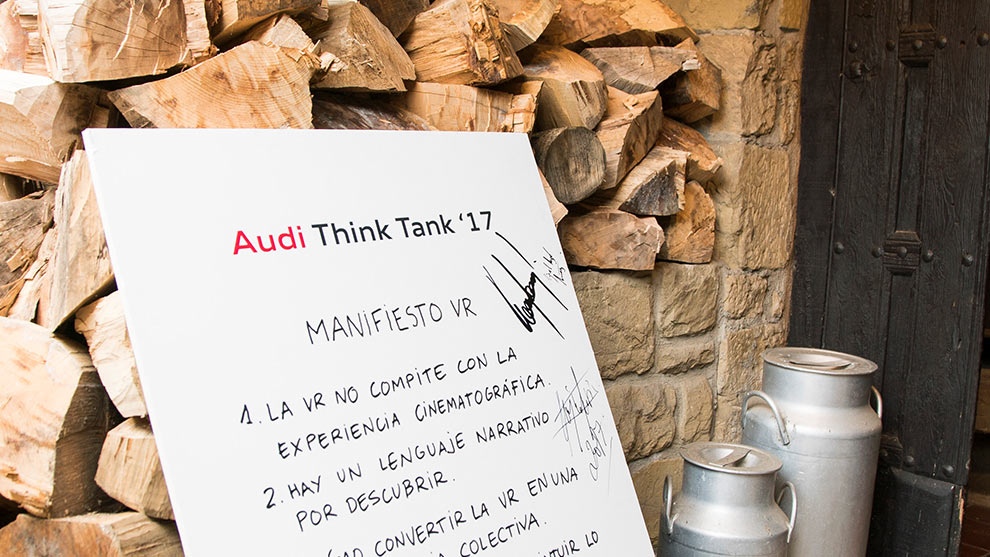 Audi Think Tank '17
MANIFIESTO VR
1. LA VR NO COMPITE CON LA
EXPERIENCIA CINEMATOGRÁFICA.
2. HAY UN LENGUAJE NARRATIVO
POR DESCUBRIR.
CONVERTIR LA VR EN UNA
COLECTIVA.
LO